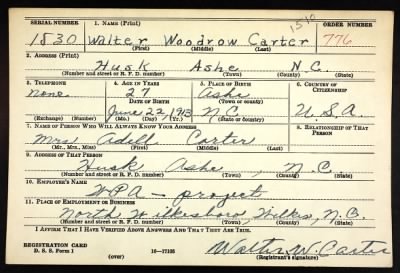 SERIAL NUMBER 1. NAME (Print) 1510 ORDER NUMBER
1830 Walter Woodrow Carter 776
(First) (Middle) (Last)
2. ADDRESS (Print)
Husk Ashe N.C.
(Number and street or R. F. D. number) (Town) (County) (State)
3. TELEPHONE 4. AGE IN YEARS 5. PLACE OF BIRTH 6. COUNTRY OF CITIZENSHIP
none 27 Ashe
DATE OF BIRTH (Town or county)
June 22, 1913 N.C. U.S.A.
(Exchange) (Number) (Mo.) (Day) (Yr.) (State or country)
7. NAME OF PERSON WHO WILL ALWAYS KNOW YOUR ADDRESS 8. RELATIONSHIP OF THAT PERSON
Mrs. Carter
(Mr., Mrs., Miss) (First) (Middle) (Last)
9. ADDRESS OF THAT PERSON
Husk Ashe, N.C.
(Number and street or R. F. D. number) (Town) (County) (State)
10. EMPLOYER'S NAME
WPA - project
11. PLACE OF EMPLOYMENT OR BUSINESS
North Wilkesboro, Wilkes, N.C.
(Number and street or R. F. D. number) (Town) (County) (State)
I AFFIRM THAT I HAVE VERIFIED ABOVE ANSWERS AND THAT THEY ARE TRUE.
REGISTRATION CARD
D. S. S. Form 1 (over) 16-17105 Walter W. Carter
(Registrant's signature)